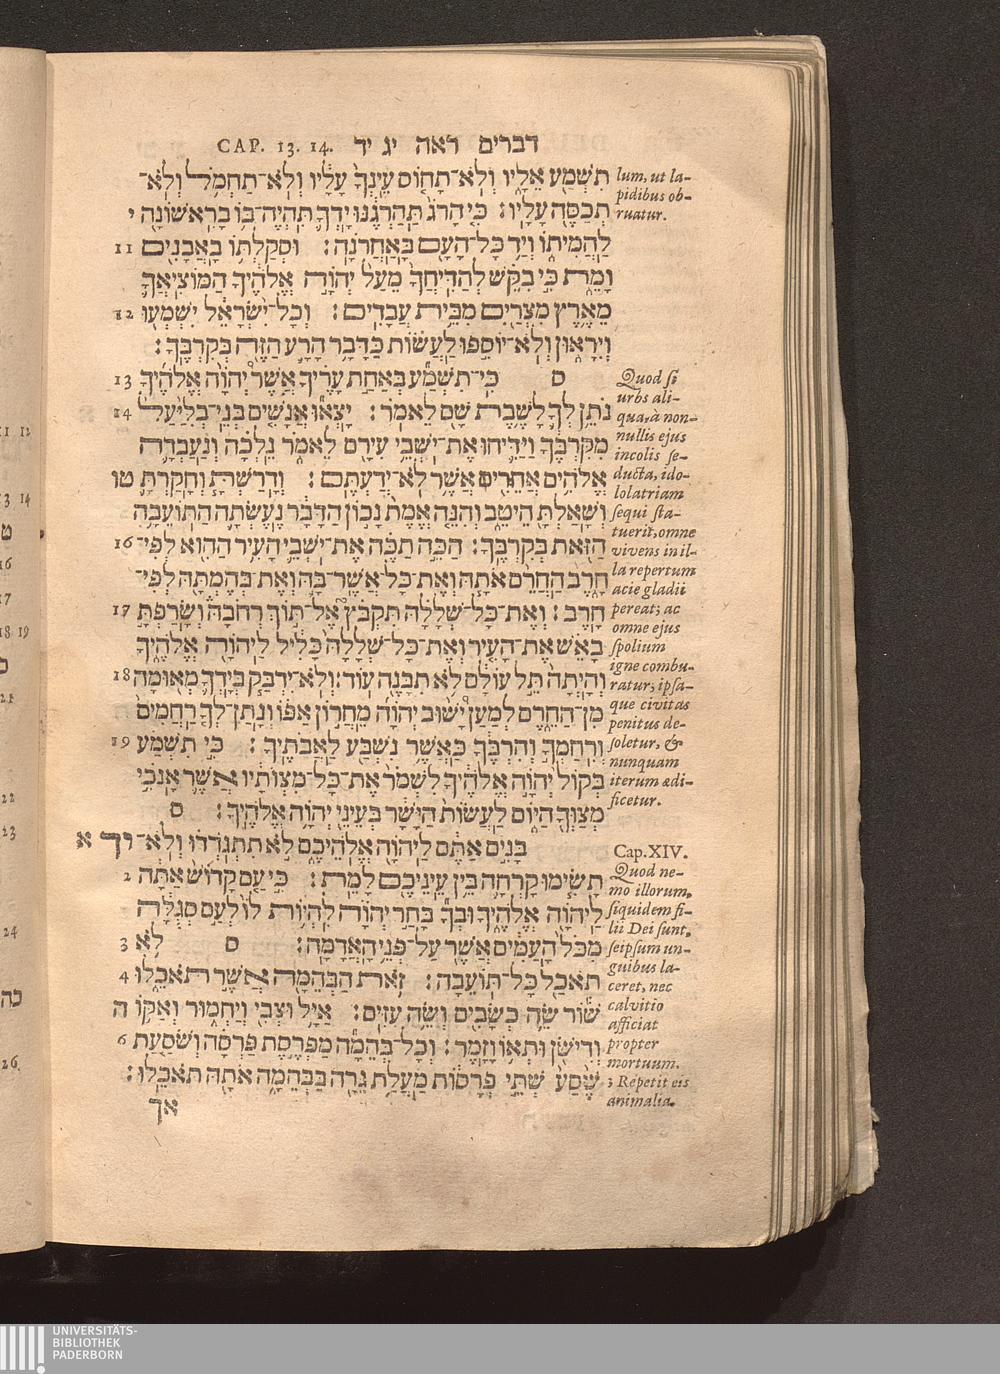 CAP. 13. 14. דברים ראה יג יד
תִשְׁמַע אֵלָיו וְלֹא־תָחוֹס עֵינְךָ עָלָיו וְלֹא־תַחְמֹל וְלֹא־
תְכַסֶּה עָלָיו׃ כִּי הָרֹג תַּהַרְגֶנּוּ יָדְךָ תִּהְיֶה־בּוֹ בָרִאשׁוֹנָה י
לַהֲמִיתוֹ וְיַד כָּל־הָעָם בָּאַחֲרֹנָה׃ וּסְקַלְתּוֹ בָאֲבָנִים 11
וָמֵת כִּי בִקֵּשׁ לְהַדִּיחֲךָ מֵעַל יְהוָה אֱלֹהֶיךָ הַמּוֹצִיאֲךָ
מֵאֶרֶץ מִצְרַיִם מִבֵּית עֲבָדִים׃ וְכָל־יִשְׂרָאֵל יִשְׁמְעוּ 12
וְיִרָאוּן וְלֹא־יוֹסִפוּ לַעֲשׂוֹת כַּדָּבָר הָרָע הַזֶּה בְּקִרְבֶּךָ׃
ס כִּי־תִשְׁמַע בְּאַחַת עָרֶיךָ אֲשֶׁר יְהוָה אֱלֹהֶיךָ 13
נֹתֵן לְךָ לָשֶׁבֶת שָׁם לֵאמֹר׃ יָצְאוּ אֲנָשִׁים בְּנֵי־בְלִיַּעַל 14
מִקִּרְבֶּךָ וַיַּדִּיחוּ אֶת־יֹשְׁבֵי עִירָם לֵאמֹר נֵלְכָה וְנַעַבְדָה
אֱלֹהִים אֲחֵרִים אֲשֶׁר לֹא־יְדַעְתֶּם׃ וְדָרַשְׁתָּ וְחָקַרְתָּ טו
וְשָׁאַלְתָּ הֵיטֵב וְהִנֵּה אֱמֶת נָכוֹן הַדָּבָר נֶעֶשְׂתָה הַתּוֹעֵבָה
הַזֹּאת בְּקִרְבֶּךָ׃ הַכֵּה תַכֶּה אֶת־יֹשְׁבֵי הָעִיר הַהוּא לְפִי־ 16
חָרֶב הַחֲרֵם אֹתָהּ וְאֶת־כָּל־אֲשֶׁר־בָּהּ וְאֶת־בְּהֶמְתָּהּ לְפִי־
חָרֶב׃ וְאֶת־כָּל־שְׁלָלָהּ תִּקְבֹּץ אֶל־תּוֹךְ רְחֹבָהּ וְשָׂרַפְתָּ 17
בָאֵשׁ אֶת־הָעִיר וְאֶת־כָּל־שְׁלָלָהּ כָּלִיל לַיהוָה אֱלֹהֶיךָ
וְהָיְתָה תֵּל עוֹלָם לֹא תִבָּנֶה עוֹד׃ וְלֹא־יִדְבַּק בְּיָדְךָ מְאוּמָה 18
מִן־הַחֵרֶם לְמַעַן יָשׁוּב יְהוָה מֵחֲרוֹן אַפּוֹ וְנָתַן־לְךָ רַחֲמִים
וְרִחַמְךָ וְהִרְבֶּךָ כַּאֲשֶׁר נִשְׁבַּע לַאֲבֹתֶיךָ׃ כִּי תִשְׁמַע 19
בְּקוֹל יְהוָה אֱלֹהֶיךָ לִשְׁמֹר אֶת־כָּל־מִצְוֺתָיו אֲשֶׁר אָנֹכִי
מְצַוְּךָ הַיּוֹם לַעֲשׂוֹת הַיָּשָׁר בְּעֵינֵי יְהוָה אֱלֹהֶיךָ׃ ס
בָּנִים אַתֶּם לַיהוָה אֱלֹהֵיכֶם לֹא תִתְגֹּדְדוּ וְלֹא־ יד א
תָשִׂימוּ קָרְחָה בֵּין עֵינֵיכֶם לָמֵת׃ כִּי עַם קָדוֹשׁ אַתָּה 2
לַיהוָה אֱלֹהֶיךָ וּבְךָ בָּחַר יְהוָה לִהְיוֹת לוֹ לְעַם סְגֻלָּה
מִכֹּל הָעַמִּים אֲשֶׁר עַל־פְּנֵי הָאֲדָמָה׃ ס לֹא 3
תֹאכַל כָּל־תּוֹעֵבָה׃ זֹאת הַבְּהֵמָה אֲשֶׁר תֹּאכֵלוּ 4
שׁוֹר שֵׂה כְשָׂבִים וְשֵׂה עִזִּים׃ אַיָּל וּצְבִי וְיַחְמוּר וְאַקּוֹ ה
וְדִישֹׁן וּתְאוֹ וָזָמֶר׃ וְכָל־בְּהֵמָה מַפְרֶסֶת פַּרְסָה וְשֹׁסַעַת 6
שֶׁסַע שְׁתֵּי פְרָסוֹת מַעֲלַת גֵּרָה בַּבְּהֵמָה אֹתָהּ תֹּאכֵלוּ׃
אך
lum, ut la-
pidibus ob-
ruatur.
Quod si
urbs ali-
qua, à non-
nullis ejus
incolis se-
ducta, ido-
lolatriam
sequi sta-
tuerit, omne
vivens in il-
la repertum
acie gladii
pereat; ac
omne ejus
spolium
igne combu-
ratur; ipsa-
que civitas
penitus de-
soletur, &
nunquam
iterum ædi-
ficetur.
Cap. XIV.
Quod ne-
mo illorum,
siquidem fi-
lii Dei sunt,
seipsum un-
guibus la-
ceret, nec
calvitio
afficiat
propter
mortuum.
3 Repetit eis
animalia.
11 12
13 14
ט
16
17
18 19
כ
21
22
23
24
כה
26.
UNIVERSITÄTS-
BIBLIOTHEK
PADERBORN